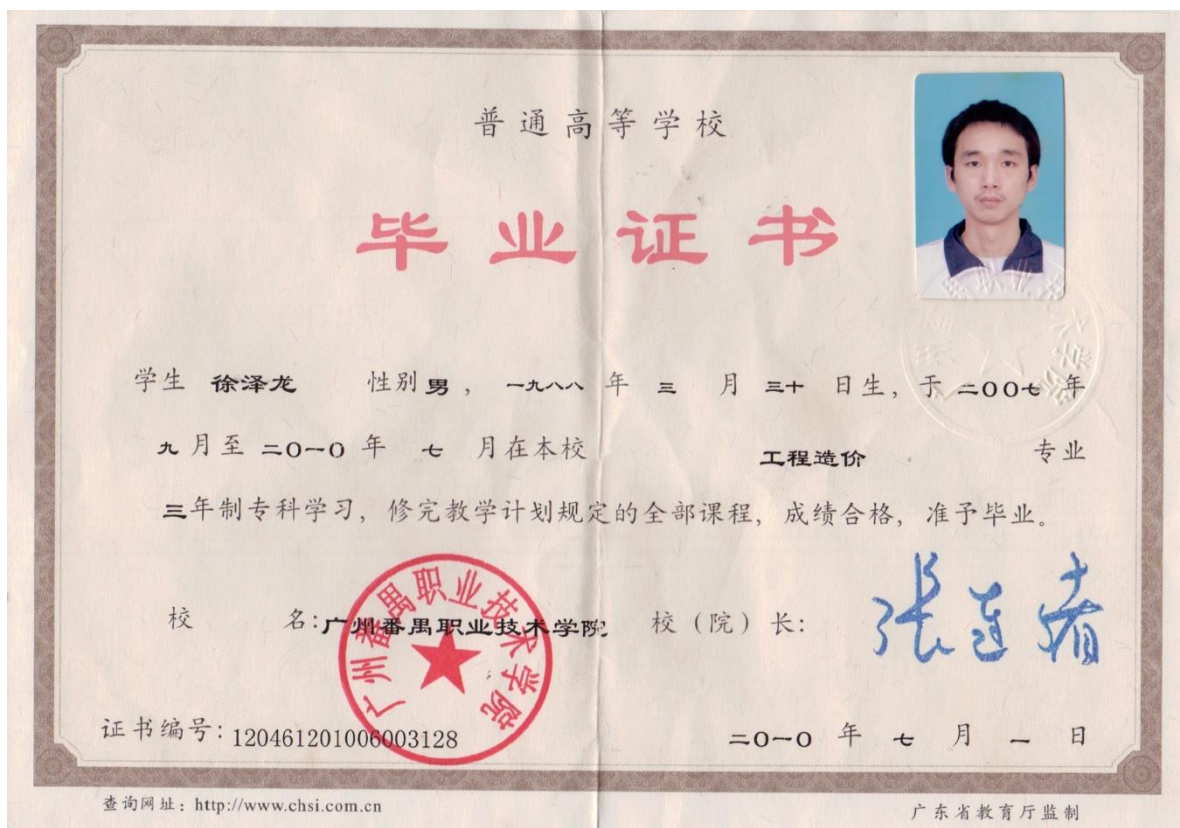 普通高等学校
毕业证书
学生 徐泽龙 性别 男， 一九八八 年 三 月 三十 日生，于 二〇〇七 年
九 月至 二〇一〇 年 七 月在本校 工程造价 专业
三年制专科学习，修完教学计划规定的全部课程，成绩合格，准予毕业。
校 名：广州番禺职业技术学院 校（院）长：张连绪
广州番禺职业技术学院
证书编号：120461201006003128 二〇一〇 年 七 月 一 日
查询网址：http://www.chsi.com.cn 广东省教育厅监制